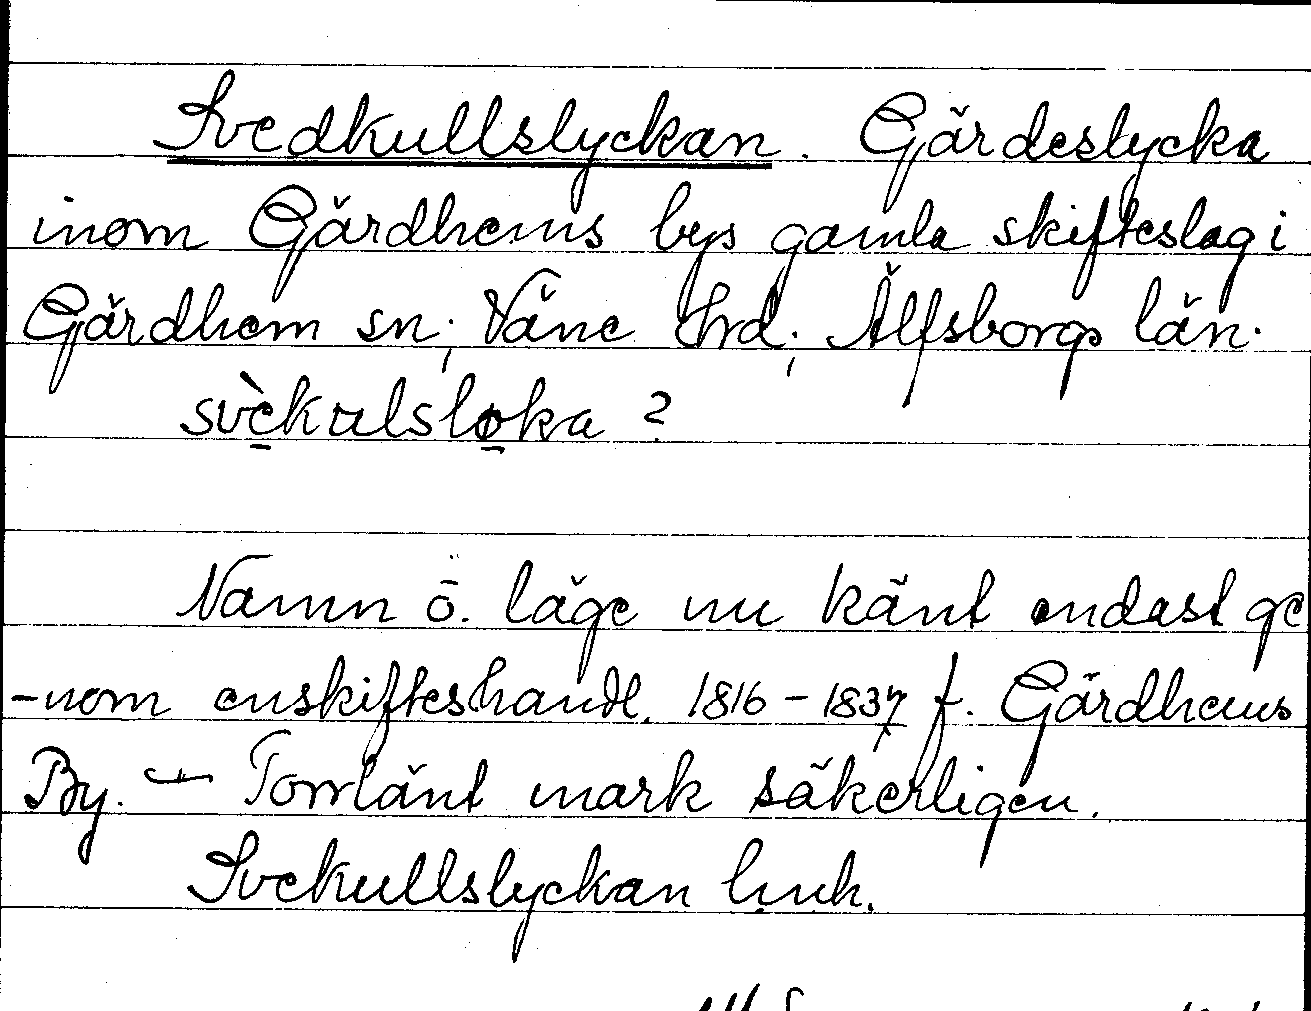 Svedkullslyckan. Gärdeslycka
inom Gärdhems bys gamla skifteslag i
Gärdhem sn; Väne Hrd; Älfsborgs län.
svèkulsloka ?
Namn ö. läge nu känt endast ge
-nom enskifteshandl. 1816-1837 f. Gärdhems
By. — Tomtänt mark säkerligen.
Svekullslyckan